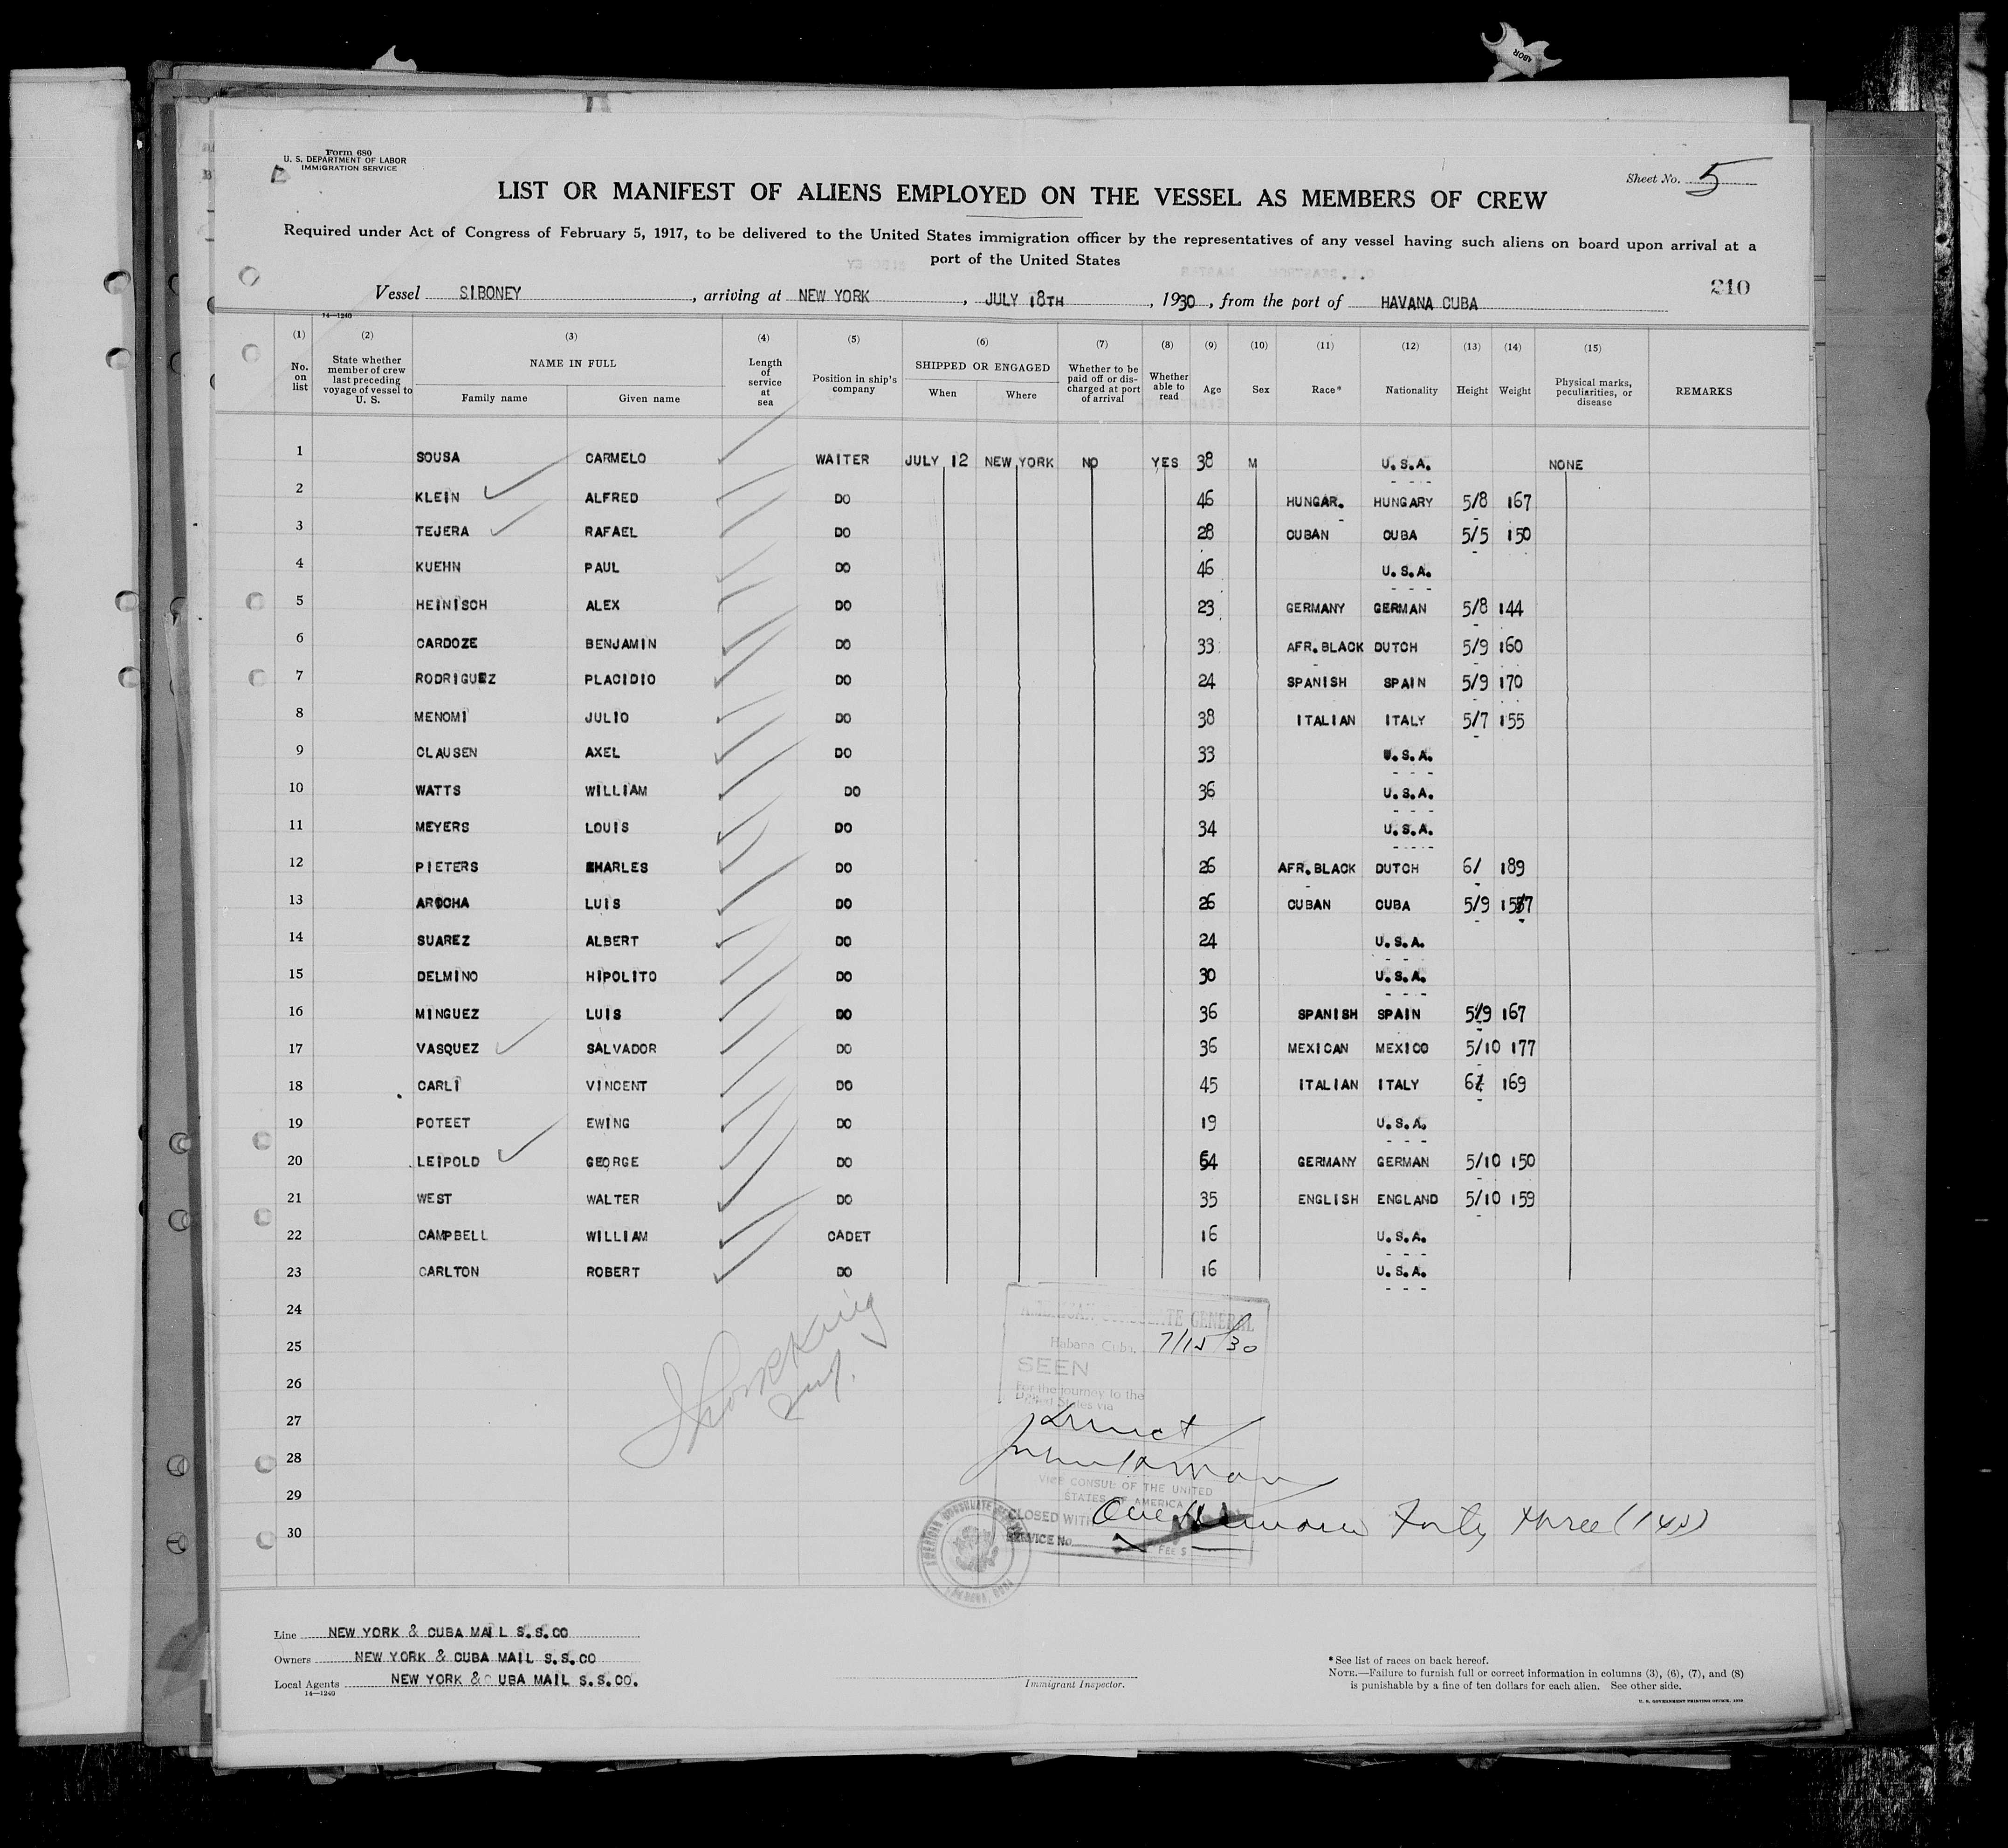 LABOR
Form 680
U. S. DEPARTMENT OF LABOR
IMMIGRATION SERVICE
Sheet No. 5
LIST OR MANIFEST OF ALIENS EMPLOYED ON THE VESSEL AS MEMBERS OF CREW
Required under Act of Congress of February 5, 1917, to be delivered to the United States immigration officer by the representatives of any vessel having such aliens on board upon arrival at a
port of the United States
210
Vessel SIBONEY, arriving at NEW YORK, JULY 18TH, 1930, from the port of HAVANA CUBA
14—1240
(1) (2) (3) (4) (5) (6) (7) (8) (9) (10) (11) (12) (13) (14) (15)
No. on list State whether member of crew last preceding voyage of vessel to U. S. NAME IN FULL Family name Given name Length of service at sea Position in ship's company SHIPPED OR ENGAGED When Where Whether to be paid off or discharged at port of arrival Whether able to read Age Sex Race* Nationality Height Weight Physical marks, peculiarities, or disease REMARKS
1 SOUSA CARMELO WAITER JULY 12 NEW YORK NO YES 38 M U.S.A. NONE
2 KLEIN ALFRED DO 46 HUNGAR. HUNGARY 5/8 167
3 TEJERA RAFAEL DO 28 CUBAN CUBA 5/5 150
4 KUEHN PAUL DO 46 U.S.A.
5 HEINISCH ALEX DO 23 GERMANY GERMAN 5/8 144
6 CARDOZE BENJAMIN DO 33 AFR.BLACK DUTCH 5/9 160
7 RODRIGUEZ PLACIDIO DO 24 SPANISH SPAIN 5/9 170
8 MENOMI JULIO DO 38 ITALIAN ITALY 5/7 155
9 CLAUSEN AXEL DO 33 U.S.A.
10 WATTS WILLIAM DO 36 U.S.A.
11 MEYERS LOUIS DO 34 U.S.A.
12 PIETERS CHARLES DO 26 AFR.BLACK DUTCH 6/ 189
13 AROCHA LUIS DO 26 CUBAN CUBA 5/9 157
14 SUAREZ ALBERT DO 24 U.S.A.
15 DELMINO HIPOLITO DO 30 U.S.A.
16 MINGUEZ LUIS DO 36 SPANISH SPAIN 5/9 167
17 VASQUEZ SALVADOR DO 36 MEXICAN MEXICO 5/10 177
18 CARLI VINCENT DO 45 ITALIAN ITALY 6/ 169
19 POTEET EWING DO 19 U.S.A.
20 LEIPOLD GEORGE DO 54 GERMANY GERMAN 5/10 150
21 WEST WALTER DO 35 ENGLISH ENGLAND 5/10 159
22 CAMPBELL WILLIAM CADET 16 U.S.A.
23 CARLTON ROBERT DO 16 U.S.A.
24
25
26
27
28
29
30
AMERICAN CONSULATE GENERAL
Habana, Cuba, 7/15/30
SEEN
For the journey to the
United States via
Direct
VICE CONSUL OF THE UNITED
STATES OF AMERICA
CLOSED WITH One Hundred Forty three (143)
SERVICE No. FEE $
AMERICAN CONSULATE GENERAL HABANA, CUBA
Line NEW YORK & CUBA MAIL S.S.CO
Owners NEW YORK & CUBA MAIL S.S.CO
Local Agents NEW YORK & CUBA MAIL S.S.CO.
14—1240
Immigrant Inspector.
* See list of races on back hereof.
NOTE.—Failure to furnish full or correct information in columns (3), (6), (7), and (8)
is punishable by a fine of ten dollars for each alien. See other side.
U. S. GOVERNMENT PRINTING OFFICE